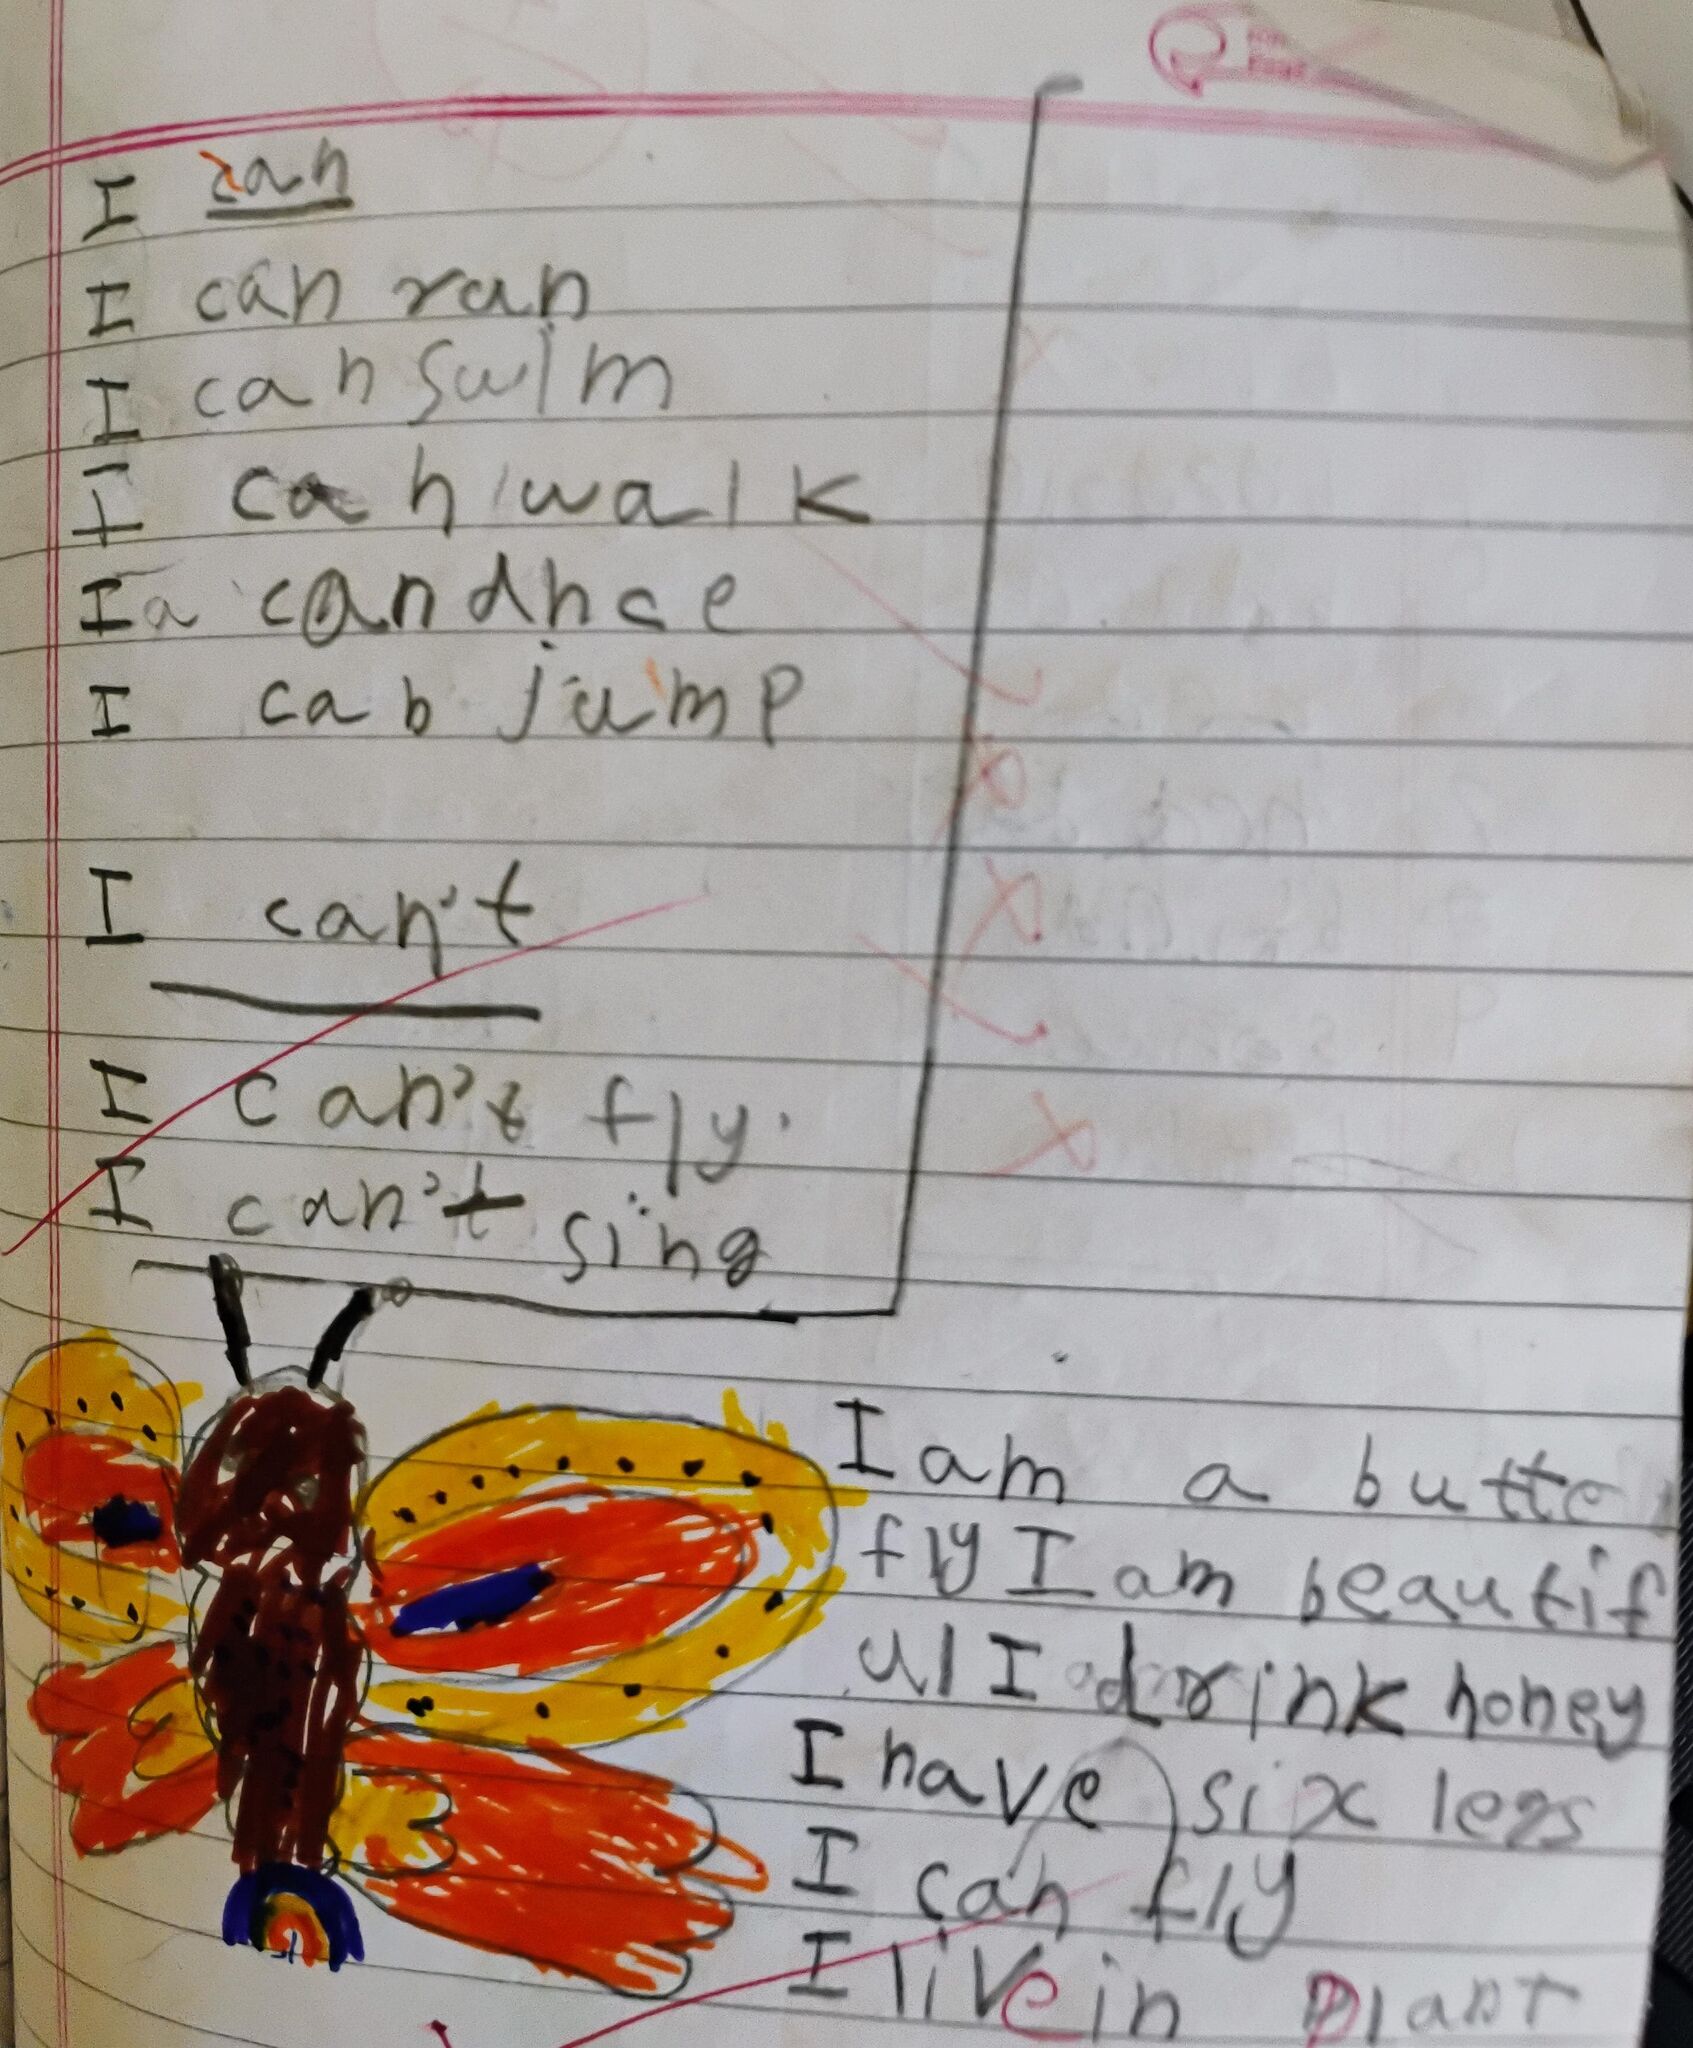 I can
I can ran
I can swim
I can walk
Ia candnce
I cab jump
I can't
I can't fly.
I can't sing
I am a butte
fly I am beautif
ul I drink honey
I have six legs
I can fly
I live in plant